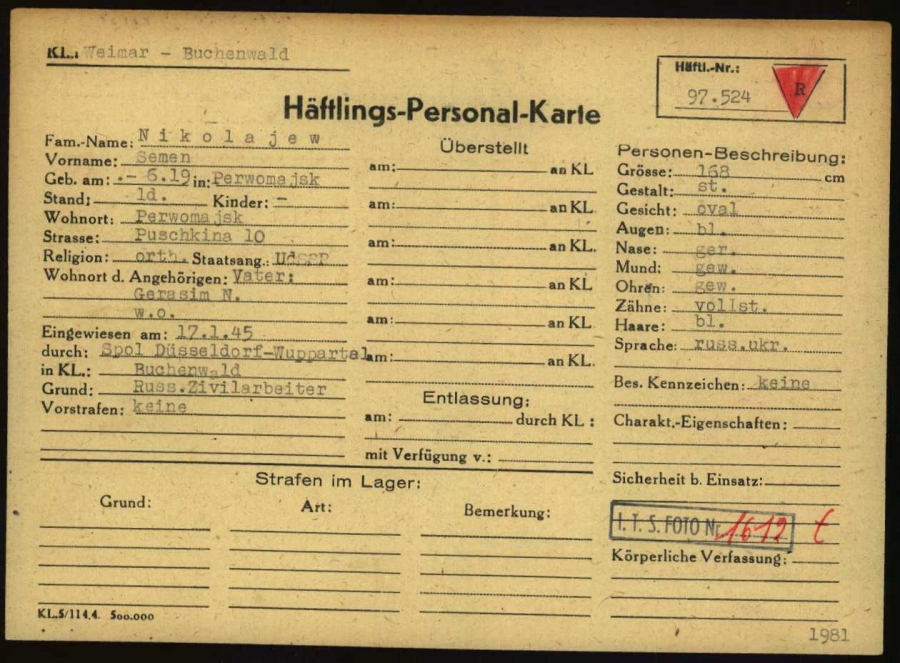 KL.: Weimar - Buchenwald
Häftl.-Nr.:
97.524
R
Häftlings-Personal-Karte
Fam.-Name: Nikolajew
Vorname: Semen
Geb. am: .- 6.19 in: Perwomajsk
Stand: ld. Kinder: -
Wohnort: Perwomajsk
Strasse: Puschkina 10
Religion: orth. Staatsang.: UdSSR
Wohnort d. Angehörigen: Vater:
Gerasim N.
w.o.
Eingewiesen am: 17.1.45
durch: Spol Düsseldorf-Wuppartal
in KL.: Buchenwald
Grund: Russ.Zivilarbeiter
Vorstrafen: keine
Überstellt
am: an KL
am: an KL.
am: an KL.
am: an KL
am: an KL
am: an KL
Entlassung:
am: durch KL :
mit Verfügung v.:
Personen-Beschreibung:
Grösse: 168 cm
Gestalt: st.
Gesicht: oval
Augen: bl.
Nase: ger.
Mund: gew.
Ohren: gew.
Zähne: vollst.
Haare: bl.
Sprache: russ.ukr.
Bes. Kennzeichen: keine
Charakt.-Eigenschaften:
Sicherheit b. Einsatz:
I. T. S. FOTO Nr. 1612 t
Körperliche Verfassung:
Strafen im Lager:
Grund: Art: Bemerkung:
KL.5/114.4. 500.000
1981